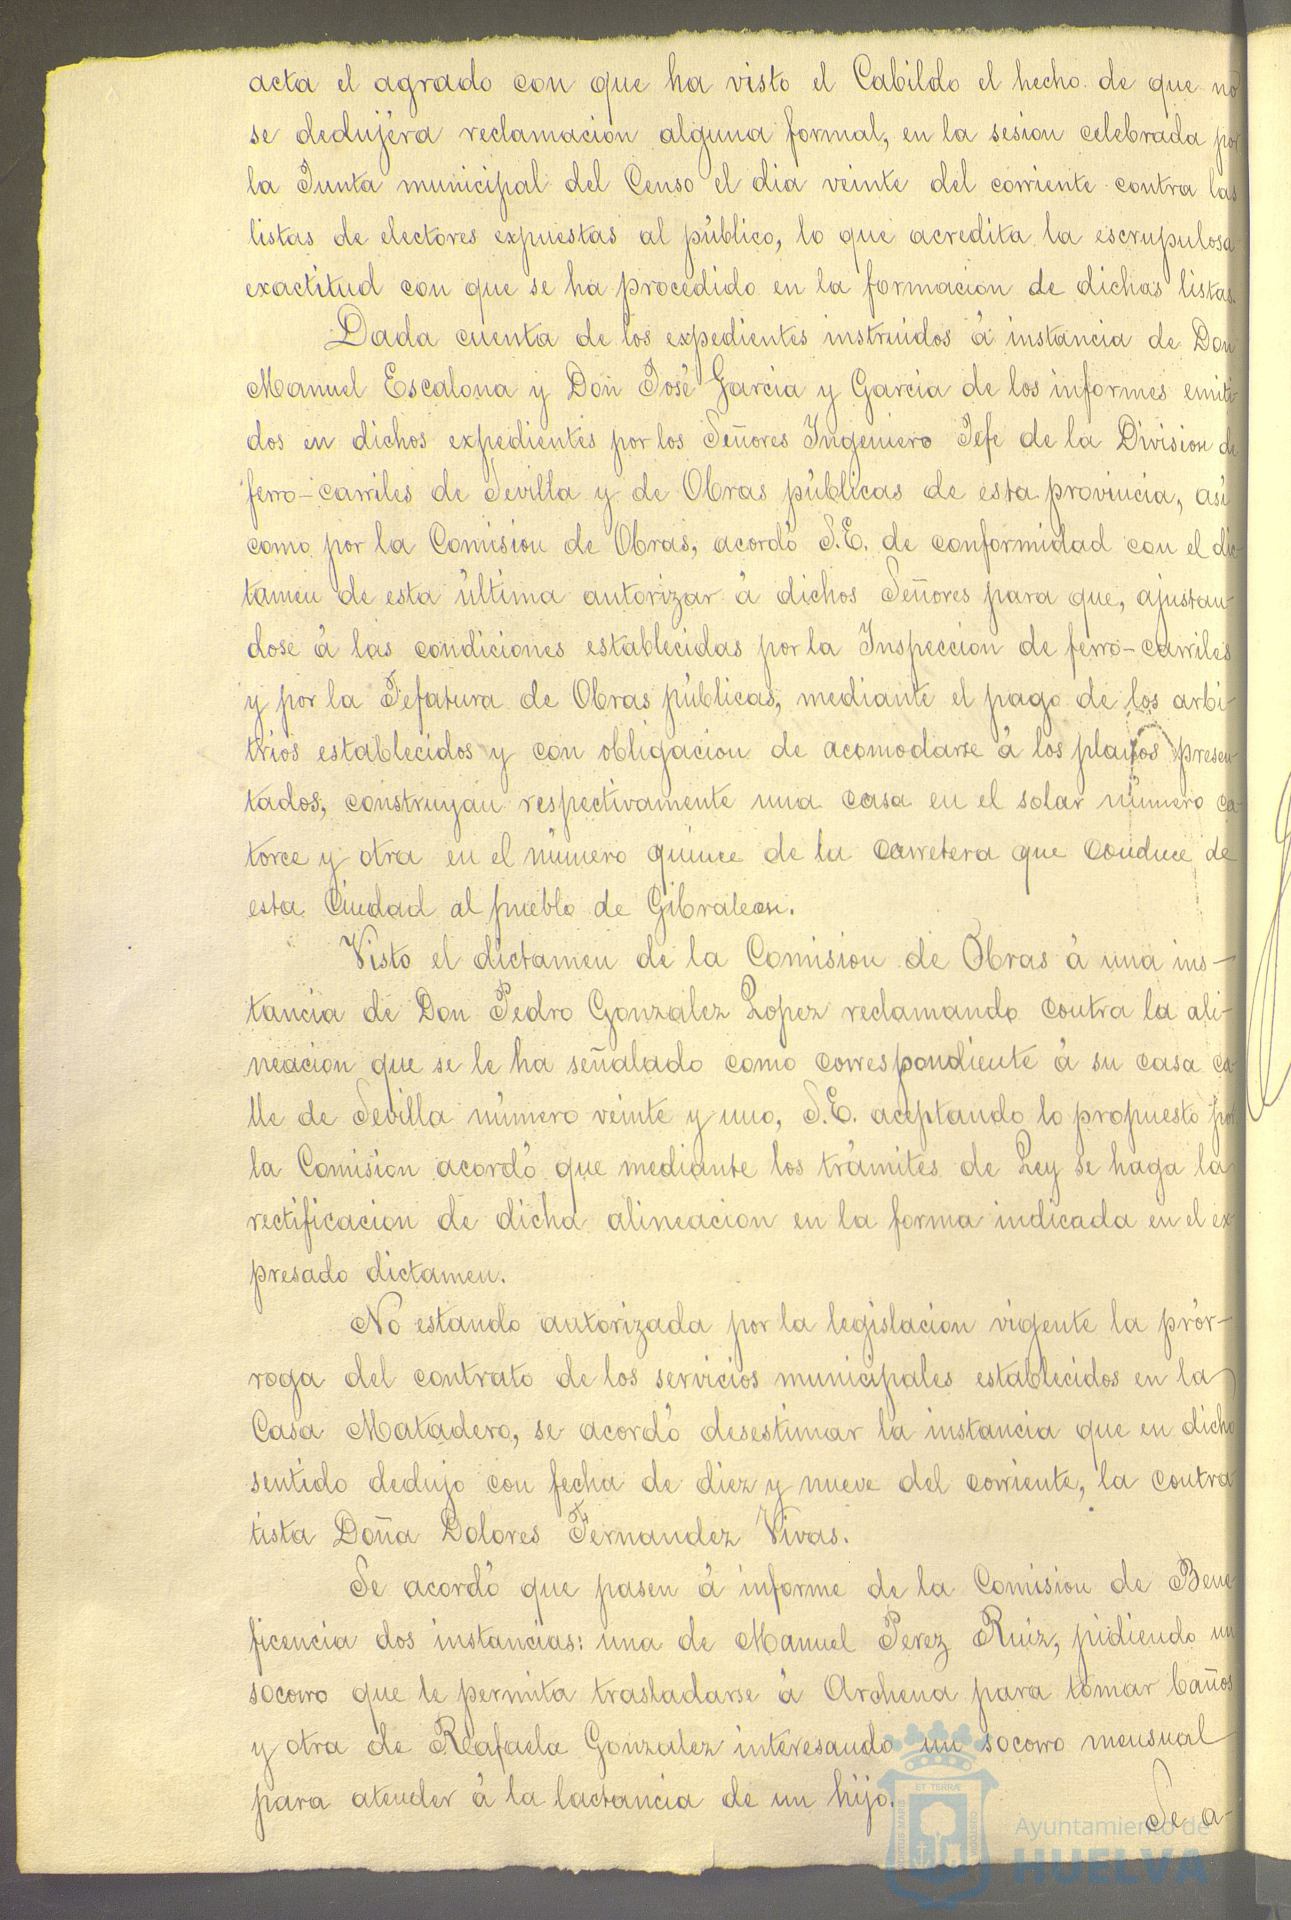 acta el agrado con que ha visto el Cabildo el hecho de que no
se dedujera reclamacion alguna formal, en la sesion celebrada por
la Junta municipal del Censo el dia veinte del corriente contra las
listas de electores expuestas al público, lo que acredita la escrupulosa
exactitud con que se ha procedido en la formacion de dichas listas.
Dada cuenta de los expedientes instruidos á instancia de Don
Manuel Escalona y Don José Garcia y Garcia de los informes emiti-
dos en dichos expedientes por los Señores Ingeniero Jefe de la Division de
ferro-carriles de Sevilla y de Obras públicas de esta provincia, asi
como por la Comision de Obras, acordó S.E. de conformidad con el dic-
tamen de esta última autorizar á dichos Señores para que, ajustan-
dose á las condiciones establecidas por la Inspeccion de ferro-carriles
y por la Jefatura de Obras públicas, mediante el pago de los arbi-
trios establecidos y con obligacion de acomodarse á los planos presen-
tados, construyan respectivamente una casa en el solar número ca-
torce y otra en el número quince de la carretera que conduce de
esta Ciudad al pueblo de Gibraleon.
Visto el dictamen de la Comision de Obras á una ins-
tancia de Don Pedro Gonzalez Lopez reclamando contra la ali-
neacion que se le ha señalado como correspondiente á su casa ca-
lle de Sevilla número veinte y uno, S.E. aceptando lo propuesto por
la Comision acordó que mediante los trámites de Ley se haga la
rectificacion de dicha alineacion en la forma indicada en el ex-
presado dictamen.
No estando autorizada por la legislacion vigente la prór-
roga del contrato de los servicios municipales establecidos en la
Casa Matadero, se acordó desestimar la instancia que en dicho
sentido dedujo con fecha de diez y nueve del corriente, la contra
tista Doña Dolores Fernandez Vivas.
Se acordó que pasen á informe de la Comision de Bene
ficencia dos instancias: una de Manuel Perez Ruiz, pidiendo un
socorro que le permita trasladarse á Archena para tomar baños
y otra de Rafaela Gonzalez interesando un socorro mensual
para atender á la lactancia de un hijo.
Se a-
Ayuntamiento de
HUELVA